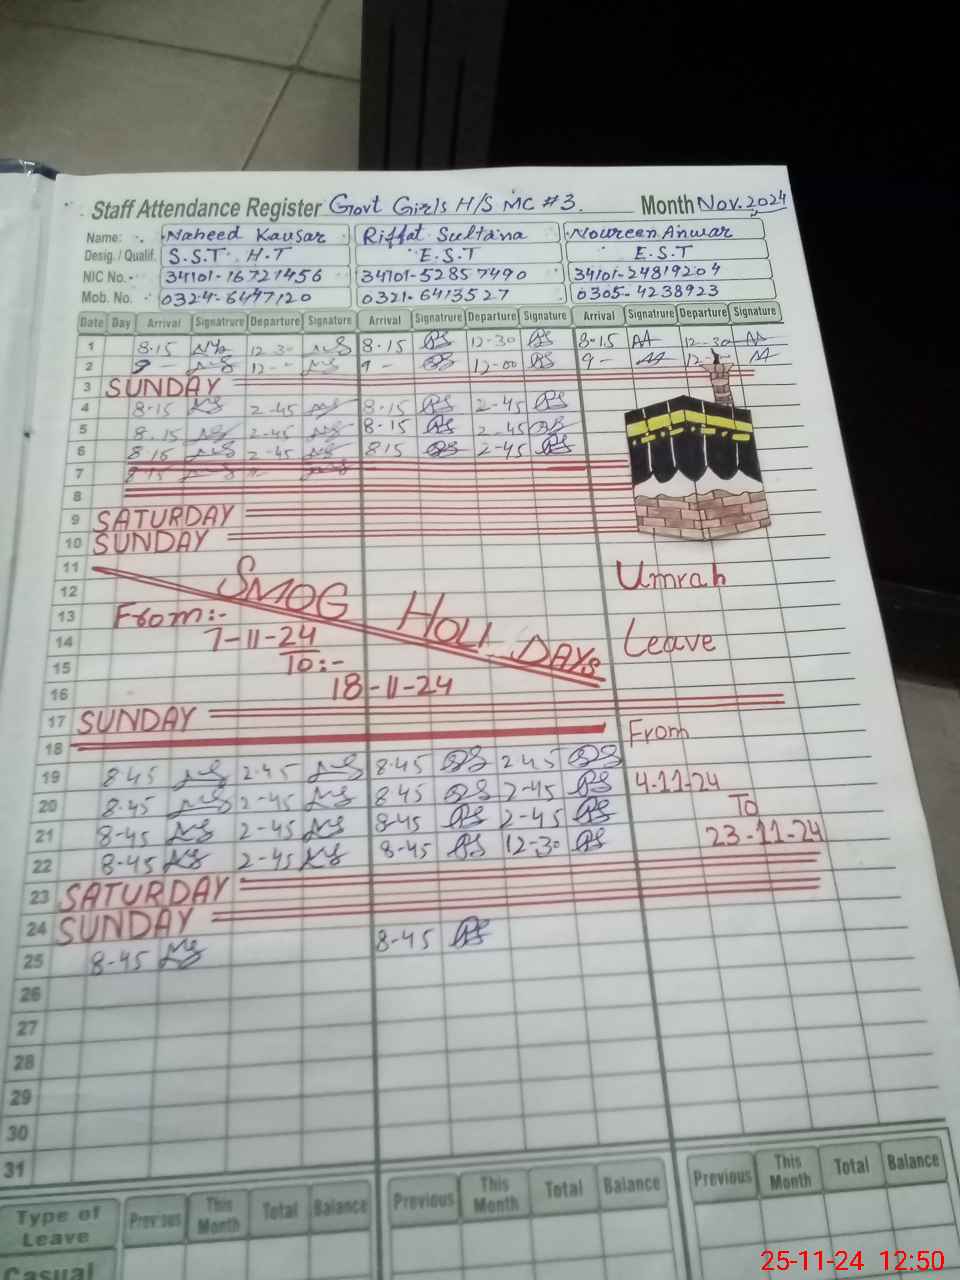 Staff Attendance Register Govt Girls H/S MC #3. Month Nov. 2024
Name: Naheed Kausar Riffat Sultana Noureen Anwar
Desig. / Qualif. S.S.T. H.T E.S.T E.S.T
NIC No. 34101-16721456 34101-52857490 34101-24819204
Mob. No. 0324-6447120 0321-6413527 0305-4238923
Date Day Arrival Signatrure Departure Signature Arrival Signatrure Departure Signature Arrival Signatrure Departure Signature
1 8.15 12-30 8.15 12-30 8.15 12-30
2 9- 12-- 9- 12-00 9- 12-
3 SUNDAY
4 8.15 2-45 8.15 2-45
5 8.15 2-45 8.15 2-45
6 8.15 2-45 8.15 2-45
7 8.15
8
9 SATURDAY
10 SUNDAY
11
12 SMOG HOLI DAYS Umrah
13 From:-
14 7-11-24 Leave
15 To:-
16 18-11-24
17 SUNDAY
18 From
19 8.45 2.45 8.45 2.45
20 8.45 2-45 8.45 2-45 4-11-24
21 8-45 2-45 8-45 2-45 To
22 8-45 2-45 8-45 12-30 23-11-24
23 SATURDAY
24 SUNDAY
25 8-45 8-45
26
27
28
29
30
31
Type of Leave Previous This Month Total Balance Previous This Month Total Balance Previous This Month Total Balance
Casual
25-11-24 12:50